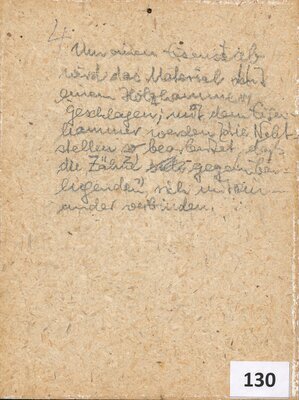 4.
Um einen Eisenstab
wird das Material mit
einem Holzhammer
geschlagen, mit dem Eisen-
hammer werden die Naht-
stellen so bearbeitet daß
die Zähne gegenüber-
liegenden sich
ander verbinden.
130